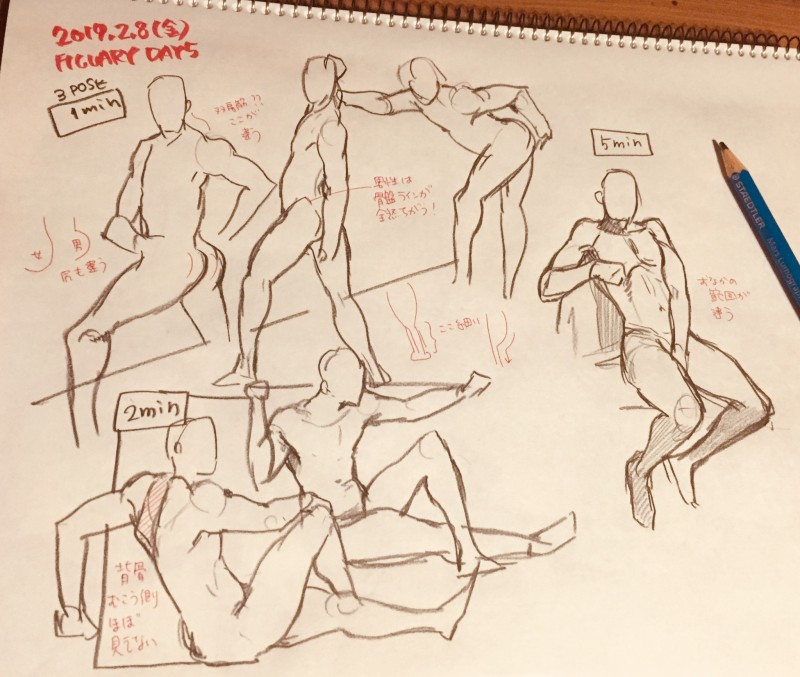 2019.2.8(金)
FIGUARY DAY5
3 POSE
1min
ここが
違う
男性は
骨盤ラインが
全然ちがう!
5min
STAEDTLER
女
男
尻も違う
おなかの
範囲が
違う
2min
背骨
むこう側
ほぼ
見えない